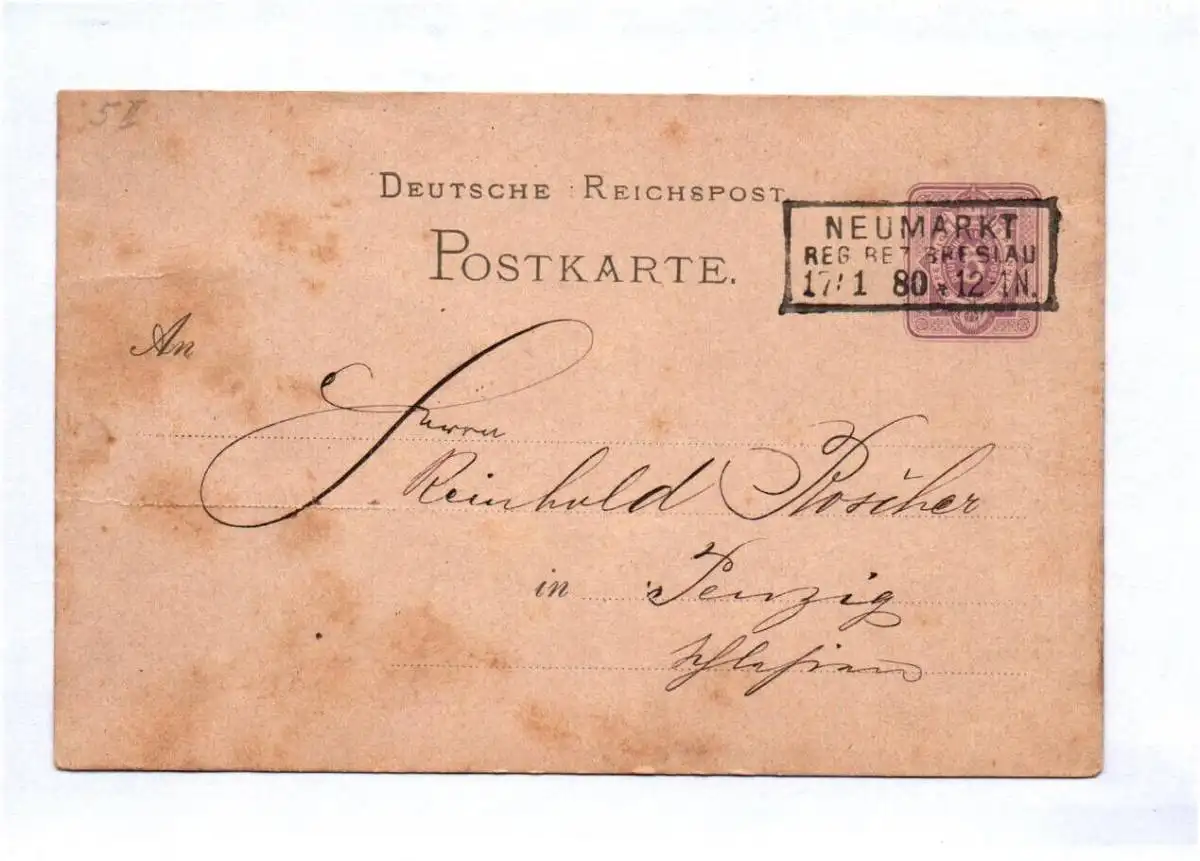 5 II
DEUTSCHE REICHSPOST
POSTKARTE.
NEUMARKT
REG. BEZ. BRESLAU
17/1 80 * 12-1N.
An
Herrn
Reinhold
in Penzig
Schlesien